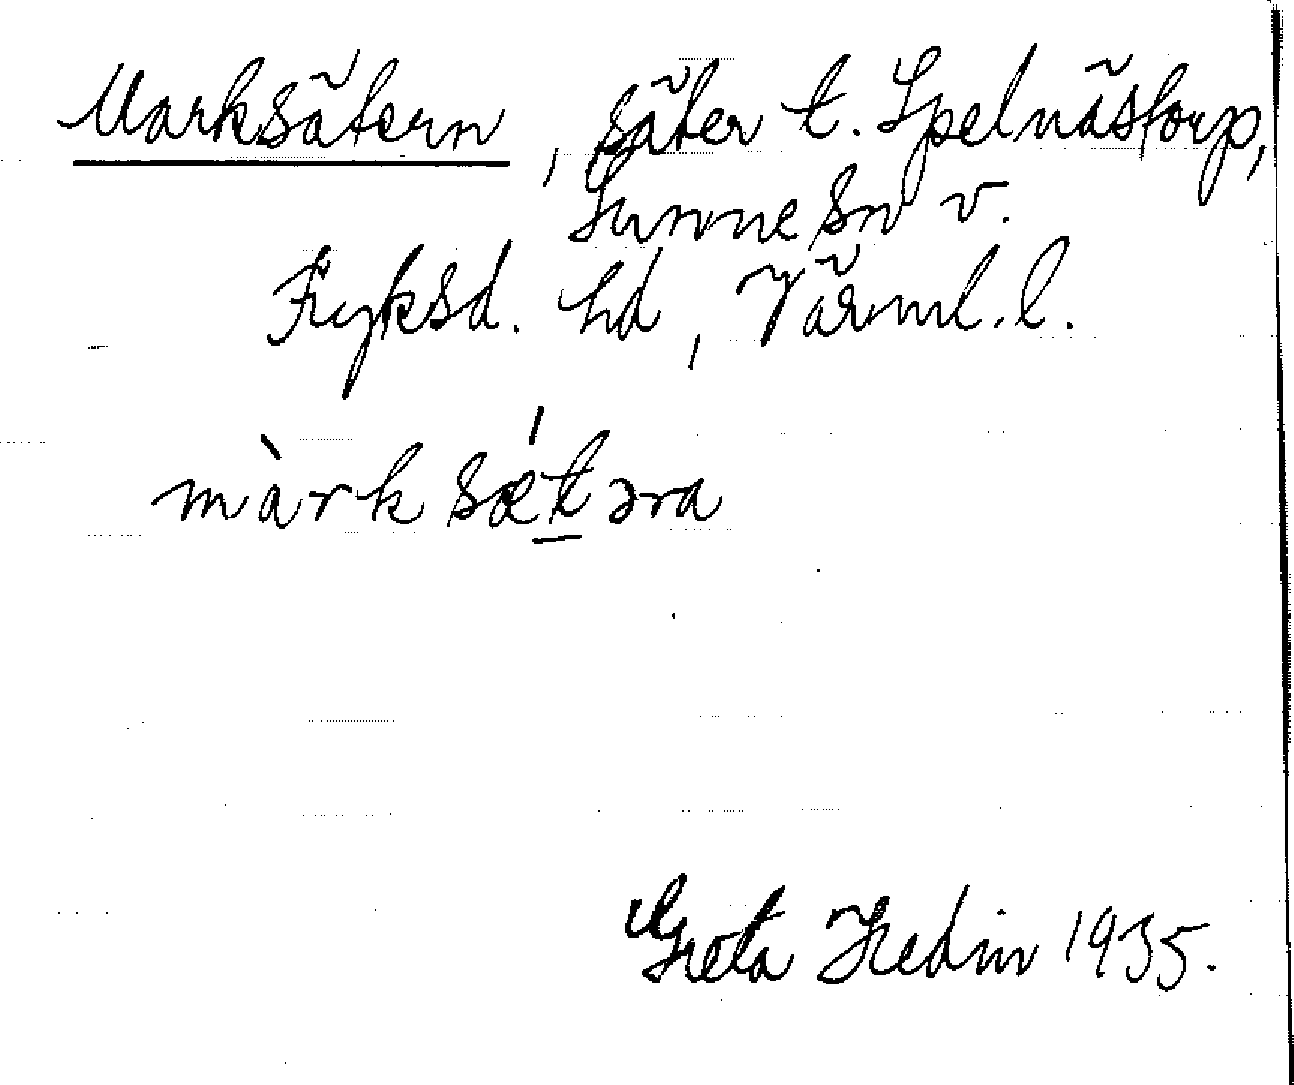 Marksätern, säter t. Spelnästorp,
Sunne sn v.
Fryksd. hd, Värml. l.
màrksæ't̲əra
Greta Hedin 1935.